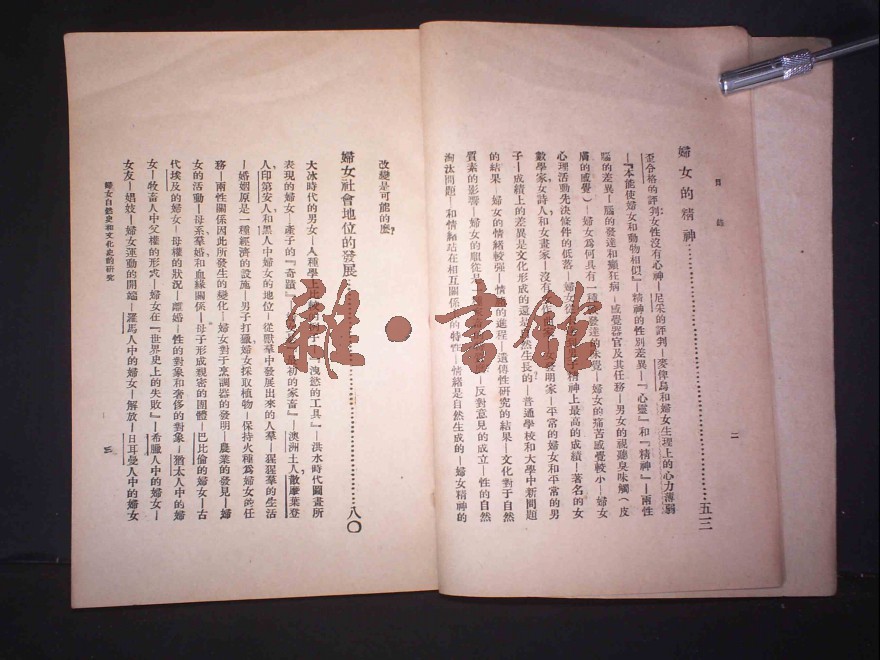 目錄
二
婦女的精神……五三
歪合格的評判：女性沒有心神—尼采的評判—麥偉烏和婦女生理上的心力薄弱
—『本能使婦女和動物相似』—精神的性別差異—『心靈』和『精神』—兩性
腦的差異—腦的發達和癲狂病—感覺器官及其任務—男女的視聽臭味觸（皮
膚的感覺）—婦女為何具有一種 發達的味覺—婦女的痛苦感覺較小—婦女
心理活動先決條件的低落—婦女從 精神上最高的成績—著名的女
數學家，女詩人，和女畫家—沒有 發明家—平常的婦女和平常的男
子—成績上的差異是文化形成的還是自然生長的？—普通學校和大學中新問題
的結果—婦女的情緒較強—情 的進程—遺傳性研究的結果—文化對于自然
質素的影響—婦女的順從 —反對意見的成立—性的自然
淘汰問題—和情緒站在相互關係 的特性—情緒是自然生成的—婦女精神的
改變是可能的麼？
婦女社會地位的發展……八〇
大冰時代的男女—人種學上 例子 洩慾的工具』—洪水時代圖畫所
表現的婦女—產子的『奇蹟』 初的家畜』—澳洲土人，散摩葉登
人，印第安人，和黑人中婦女的地位—從獸羣中發展出來的人羣—猩猩羣的生活
—婚姻原是一種經濟的設施—男子打獵，婦女採取植物—保持火種為婦女的任
務—兩性關係因此所發生的變化—婦女對于烹調器的發明—農業的發見—婦
女的活動—母系羣婚，和血緣關係—母子形成親密的團體—巴比倫的婦女—古
代埃及的婦女—母權的狀況—離婚—性的對象和奢侈的對象—猶太人中的婦
女—牧畜人中父權的形式—婦女在『世界史上的失敗』—希臘人中的婦女—
女友—娼妓—婦女運動的開端—羅馬人中的婦女—解放—日耳曼人中的婦女
婦女自然史和文化史的研究
三
雜·書館